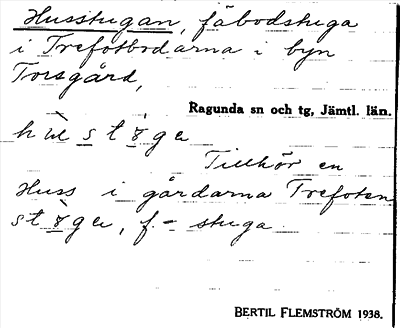 Husstugan, fäbodstuga
i Trefotbodarna i byn
Torsgård,
Ragunda sn och tg, Jämtl. län.
Tillhör en
Huss i gårdarna Trefoten
f = stuga
BERTIL FLEMSTRÖM 1938.